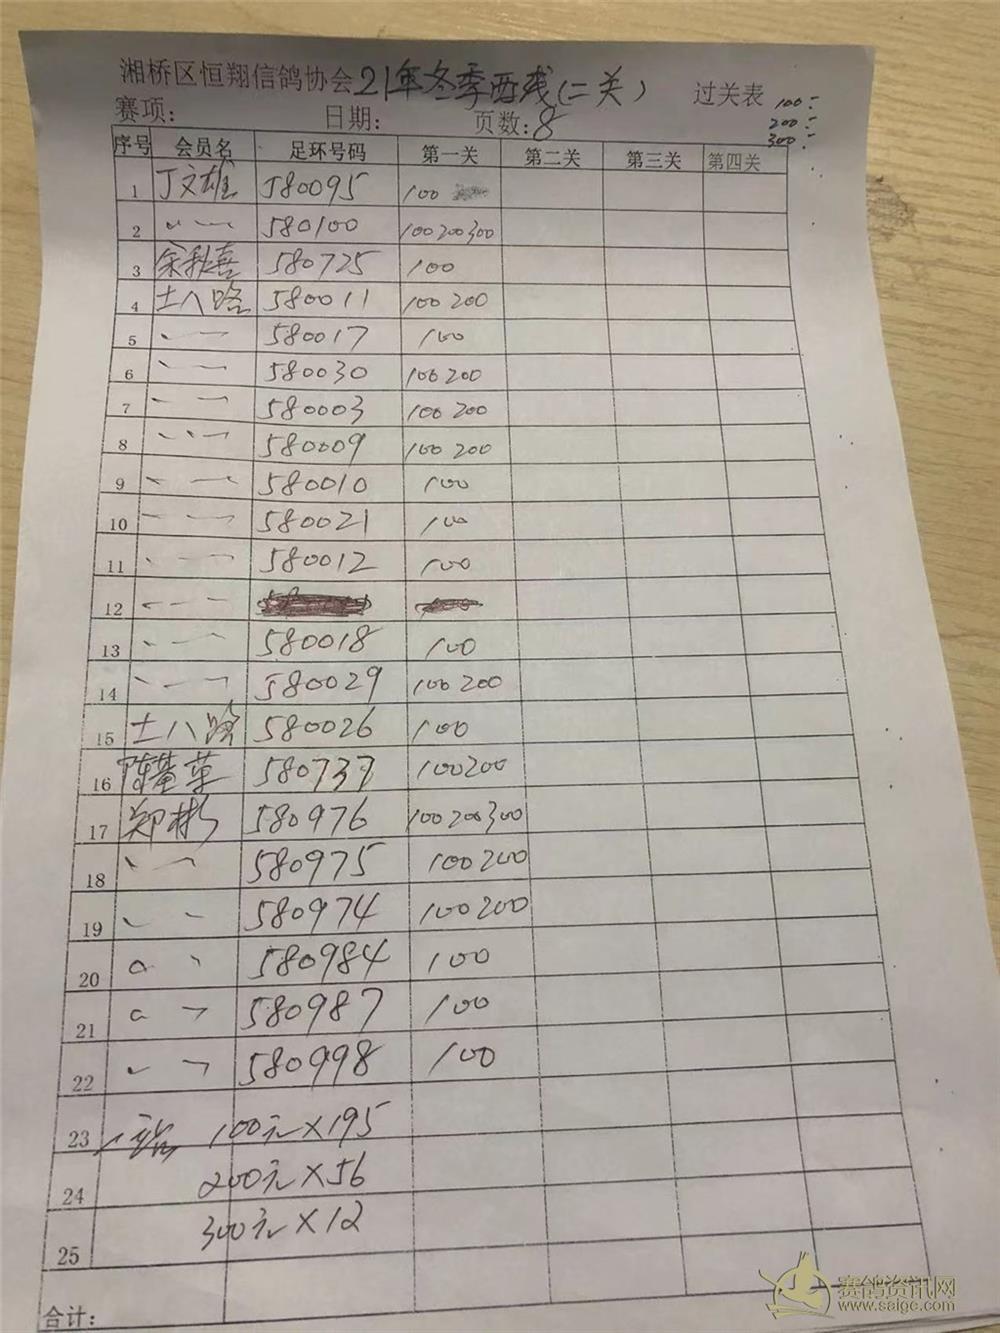 湘桥区恒翔信鸽协会21年冬季两线(二关) 过关表
赛项: 日期: 页数:8
100:
200:
300:
序号 会员名 足环号码 第一关 第二关 第三关 第四关
1 丁文雄 580095 100
2 〃 580100 100 200 300
3 余秋喜 580725 100
4 土八路 580011 100 200
5 〃 580017 100
6 〃 580030 100 200
7 〃 580003 100 200
8 〃 580009 100 200
9 〃 580010 100
10 〃 580021 100
11 〃 580012 100
12 〃
13 〃 580018 100
14 〃 580029 100 200
15 土八路 580026 100
16 陈 580737 100 200
17 郑彬 580976 100 200 300
18 〃 580975 100 200
19 〃 580974 100 200
20 〃 580984 100
21 〃 580987 100
22 〃 580998 100
23 100元×195
24 200元×56
25 300元×12
合计:
赛鸽资讯网
www.saigc.com